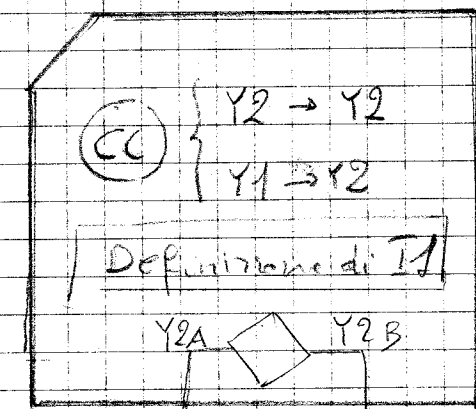 CC { Y2 → Y2
Y1 → Y2
Definizione di I1
Y2A Y2B